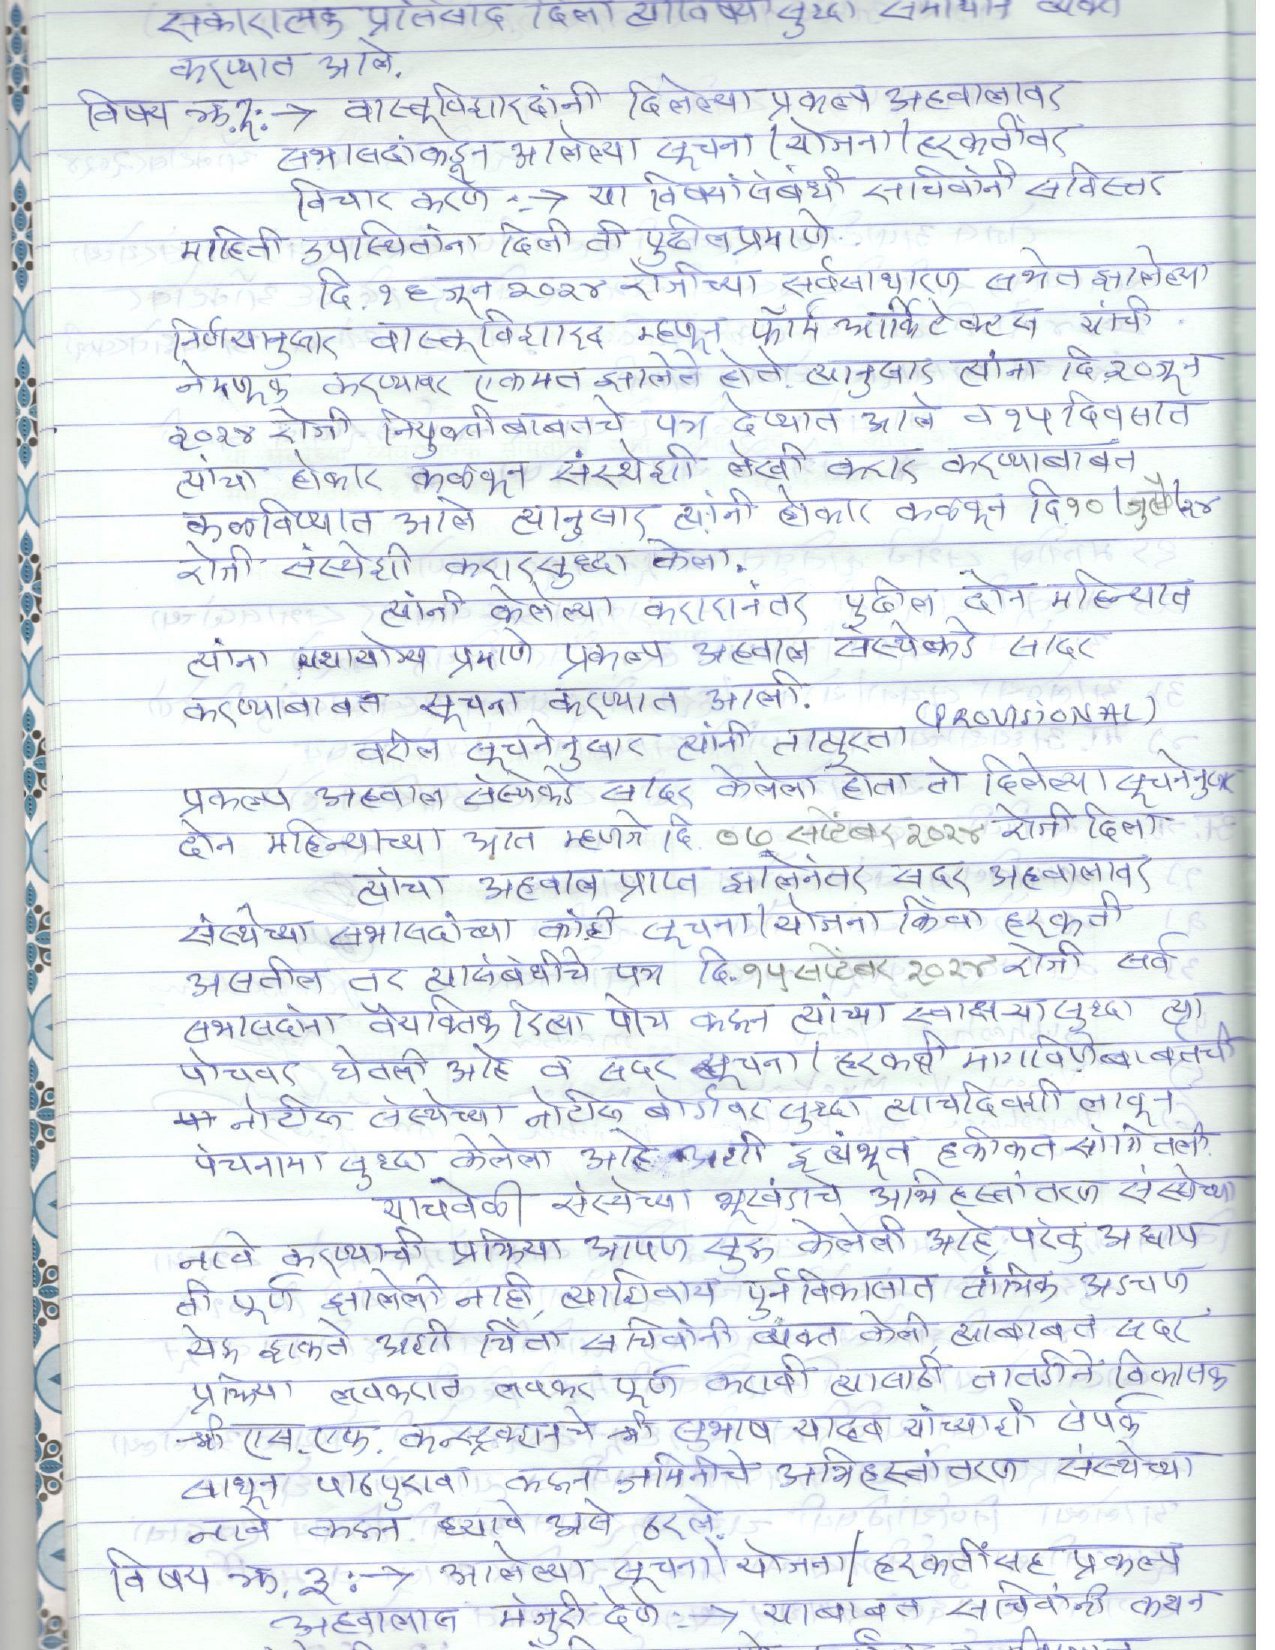 सकारात्मक प्रतिसाद दिला त्याविषयी सुध्दा समाधान व्यक्त
करण्यात आले.
विषय क्र.२:→ वास्तूविशारदांनी दिलेल्या प्रकल्प अहवालावर
सभासदांकडून आलेल्या सूचना/योजना/हरकतींवर
विचार करणे :→ या विषयासंबंधी सचिवांनी सविस्तर
माहिती उपस्थितांना दिली ती पुढीलप्रमाणे.
दि. १६ जून २०२४ रोजीच्या सर्वसाधारण सभेत झालेल्या
निर्णयानुसार वास्तूविशारद म्हणून फॉर्म आर्किटेक्टस यांची
नेमणूक करण्यावर एकमत झालेले होते. त्यानुसार त्यांना दि.२०जून
२०२४ रोजी नियुक्तीबाबतचे पत्र देण्यात आले व १५ दिवसात
त्यांचा होकार कळवून संस्थेशी लेखी करार करण्याबाबत
कळविण्यात आले त्यानुसार त्यांनी होकार कळवून दि१०/जुलै/२४
रोजी संस्थेशी करारसुध्दा केला.
त्यांनी केलेल्या करारानंतर पुढील दोन महिन्यात
त्यांना यथायोग्य प्रमाणे प्रकल्प अहवाल संस्थेकडे सादर
करण्याबाबत सूचना करण्यात आली.
(PROVISIONAL)
वरील सूचनेनुसार त्यांनी तात्पुरता
प्रकल्प अहवाल संस्थेकडे सादर केलेला होता तो दिलेल्या सूचनेनुसार
दोन महिन्याच्या आत म्हणजे दि. ०७ सप्टेंबर २०२४ रोजी दिला
त्यांचा अहवाल प्राप्त झालेनंतर सदर अहवालावर
संस्थेच्या सभासदांच्या काही सूचना/योजना किंवा हरकती
असतील तर त्यासंबंधीचे पत्र दि.१५ सप्टेंबर २०२४ रोजी सर्व
सभासदांना वैयक्तिकरित्या पोच करून त्यांच्या स्वाक्षऱ्या सुध्दा त्या
पोचवर घेतली आहे व सदर सूचना/हरकती मागविणेबाबतची
नोटीस संस्थेच्या नोटीस बोर्डवर सुध्दा त्याचदिवशी लावून
पंचनामा सुध्दा केलेला आहे अशी इत्यंभूत हकीकत सांगितली.
याचवेळी संस्थेच्या भूखंडाचे अभिहस्तांतरण संस्थेच्या
नावे करण्याची प्रक्रिया आपण सुरू केलेली आहे परंतु अद्याप
ती पूर्ण झालेली नाही, त्याशिवाय पुर्नविकासात तांत्रिक अडचण
येऊ शकते अशी चिंता सचिवांनी व्यक्त केली, त्याबाबत सदर
प्रक्रिया लवकरात लवकर पूर्ण करावी त्यासाठी तातडीने विकासक
श्री एस.एफ. कन्स्ट्रक्शनचे श्री सुभाष यादव यांच्याशी संपर्क
साधून पाठपुरावा करून जमिनीचे अभिहस्तांतरण संस्थेच्या
नावे करून घ्यावे असे ठरले.
विषय क्र. ३ :→ आलेल्या सूचना/योजना/हरकतींसह प्रकल्प
अहवालास मंजुरी देणे :→ याबाबत सचिवांनी कथन